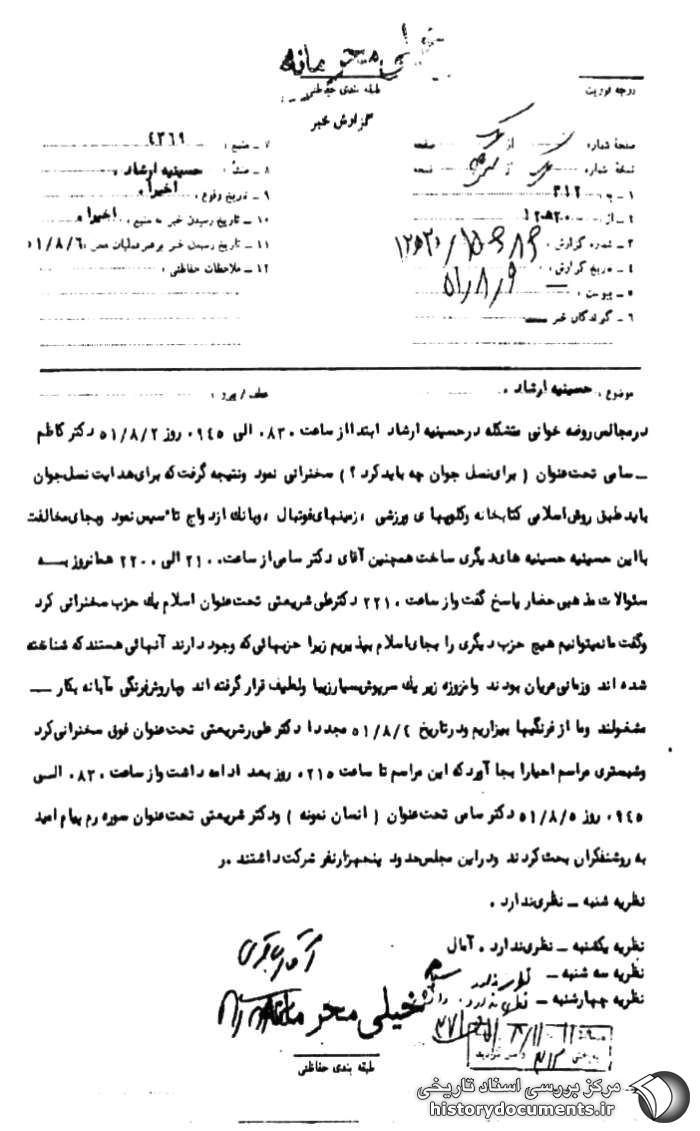 خیلی محرمانه
طبقه بندی حفاظتی
درجه فوریت
گزارش خبر
صفحه شماره از صفحه
نسخه شماره از نسخه
۱ ـ به ۳۱۲
۲ ـ از ۱۲۰۵۲۰
۳ ـ شماره گزارش
۴ ـ تاریخ گزارش ۵۱/۸/۹
۵ ـ پیوست
۶ ـ گیرندگان خبر
۷ ـ منبع ۴۳۶۹
۸ ـ منشاء حسینیه ارشاد .
۹ ـ تاریخ وقوع اخیرا .
۱۰ ـ تاریخ رسیدن خبر به منبع اخیرا .
۱۱ ـ تاریخ رسیدن خبر برهبر عملیات ۵۱/۸/۶
۱۲ ـ ملاحظات حفاظتی
موضوع : حسینیه ارشاد .
عطف / پیرو :
در مجالس روضه خوانی متشکله در حسینیه ارشاد ابتدا از ساعت ۰۸۳۰ الی ۰۹۴۵ روز ۵۱/۸/۲ دکتر کاظم
ـ سامی تحت عنوان ( برای نسل جوان چه باید کرد ؟ ) سخنرانی نمود ونتیجه گرفت که برای هدایت نسل جوان
باید طبق روش اسلامی کتابخانه وکلوبهای ورزشی ، زمینهای فوتبال ، وبانک ازدواج تاسیس نمود وبجای مخالفت
با این حسینیه حسینیه های دیگری ساخت همچنین آقای دکتر سامی از ساعت ۲۱۰۰ الی ۲۲۰۰ همانروز بسه
سئوالات مذهبی حضار پاسخ گفت واز ساعت ۲۲۱۰ دکتر علی شریعتی تحت عنوان اسلام یک حزب سخنرانی کرد
وگفت ما نمیتوانیم هیچ حزب دیگری را بجای اسلام بپذیریم زیرا حزبهائی که وجود دارند آنهائی هستند که شناخته
شده اند وزمانی عریان بودند وامروزه زیر یک سرپوش بسیار زیبا ولطیف قرار گرفته اند وباروش فرنگی مآبانه بکار ـــ
مشغولند وما از فرنگیها بیزاریم ودر تاریخ ۵۱/۸/۴ مجددا دکتر علی شریعتی تحت عنوان فوق سخنرانی کرد
وشبستری مراسم احیا را بجا آورد که این مراسم تا ساعت ۰۲۱۵ روز بعد ادامه داشت واز ساعت ۰۸۳۰ السی
۰۹۴۵ روز ۵۱/۸/۵ دکتر سامی تحت عنوان ( انسان نمونه ) ودکتر شریعتی تحت عنوان سوره رم پیام امید
به روشنفکران بحث کردند ودر این مجلس حدود پنجهزار نفر شرکت داشتند .ر
نظریه شنبه ـ نظری ندارد .
نظریه یکشنبه ـ نظری ندارد . آمال
نظریه سه شنبه ـ نظری ندارد
نظریه چهارشنبه ـ نظری ندارد
خیلی محرمانه
طبقه بندی حفاظتی
مرکز بررسی اسناد تاریخی
historydocuments.ir